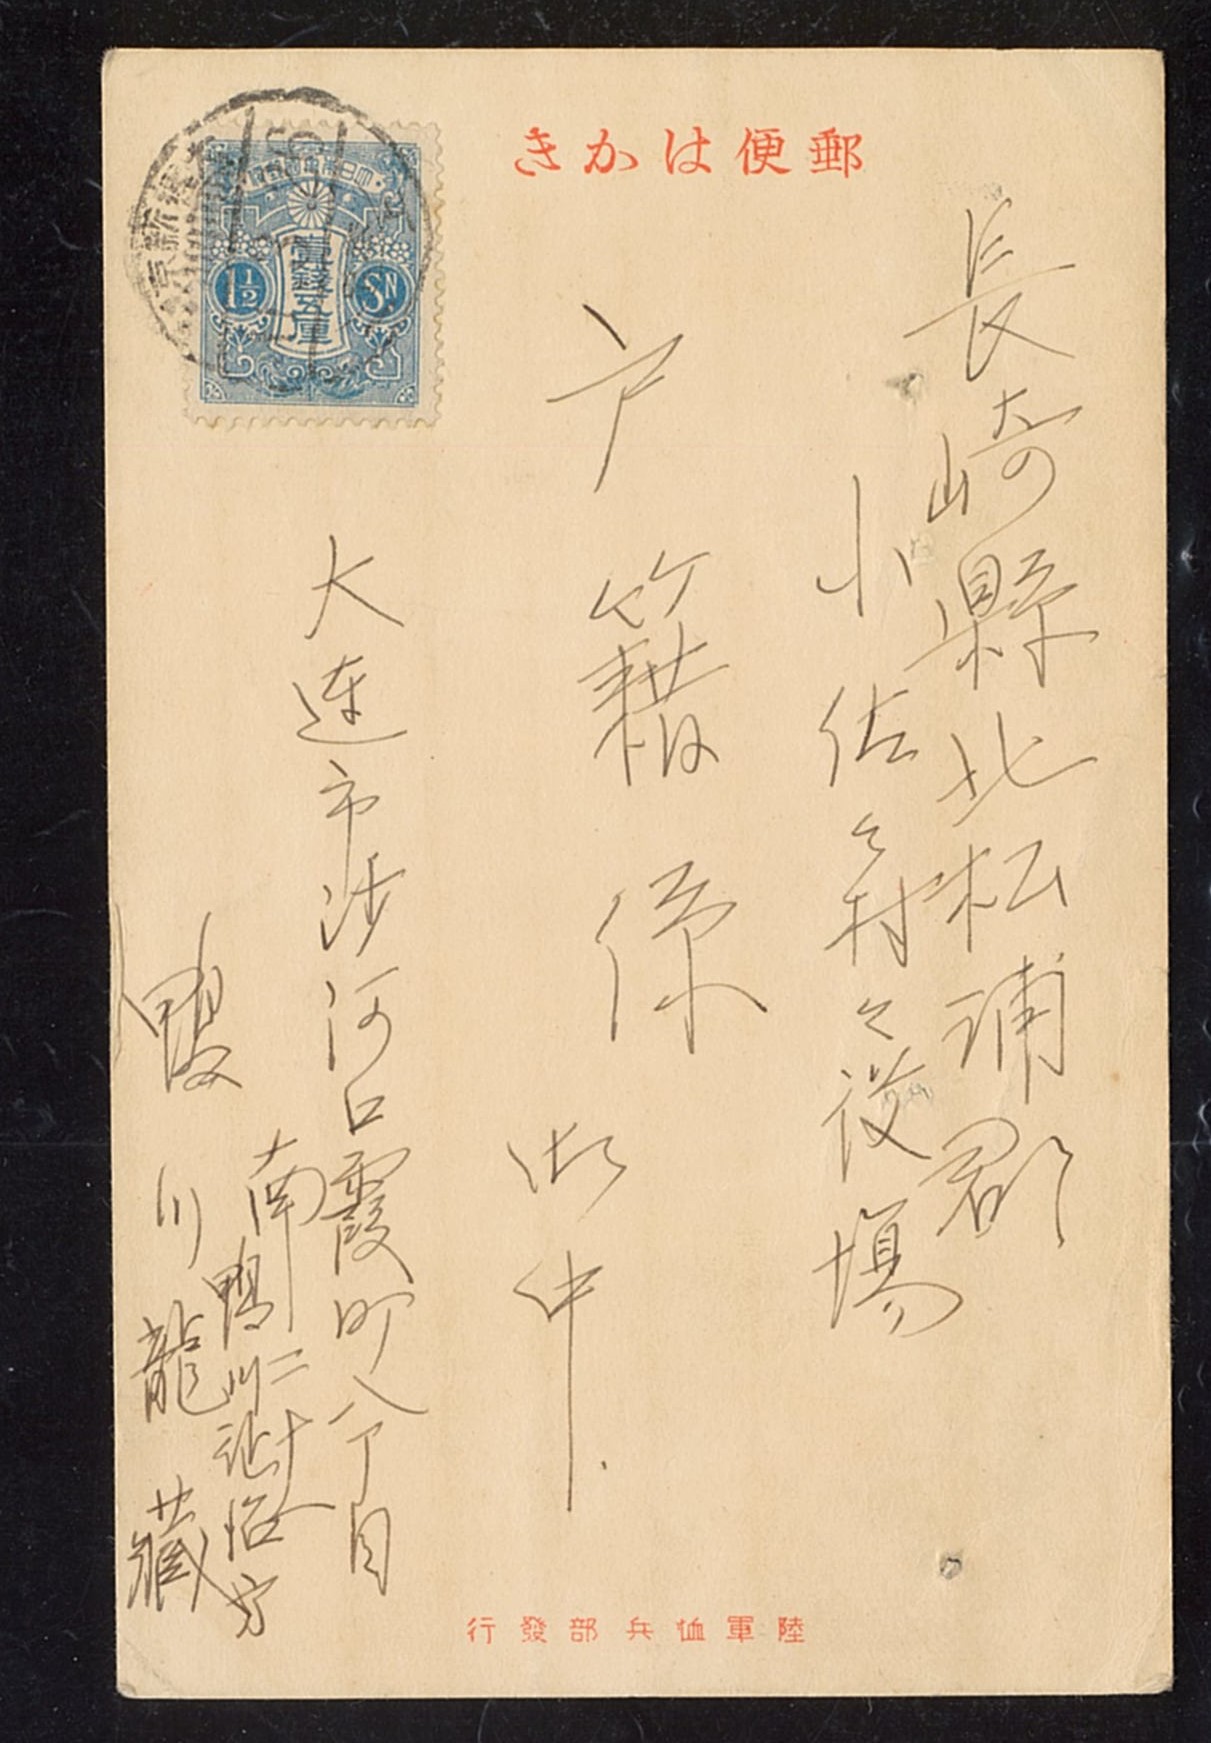 郵便はかき
大日本帝國郵便
壹錢五厘
1½
Sn.
長崎縣北松浦郡
小佐々村々役場
戸籍係
御中.
大連市沙河口霞町八丁目
南二十八
鴨川
方
鴨川龍藏
陸軍恤兵部發行